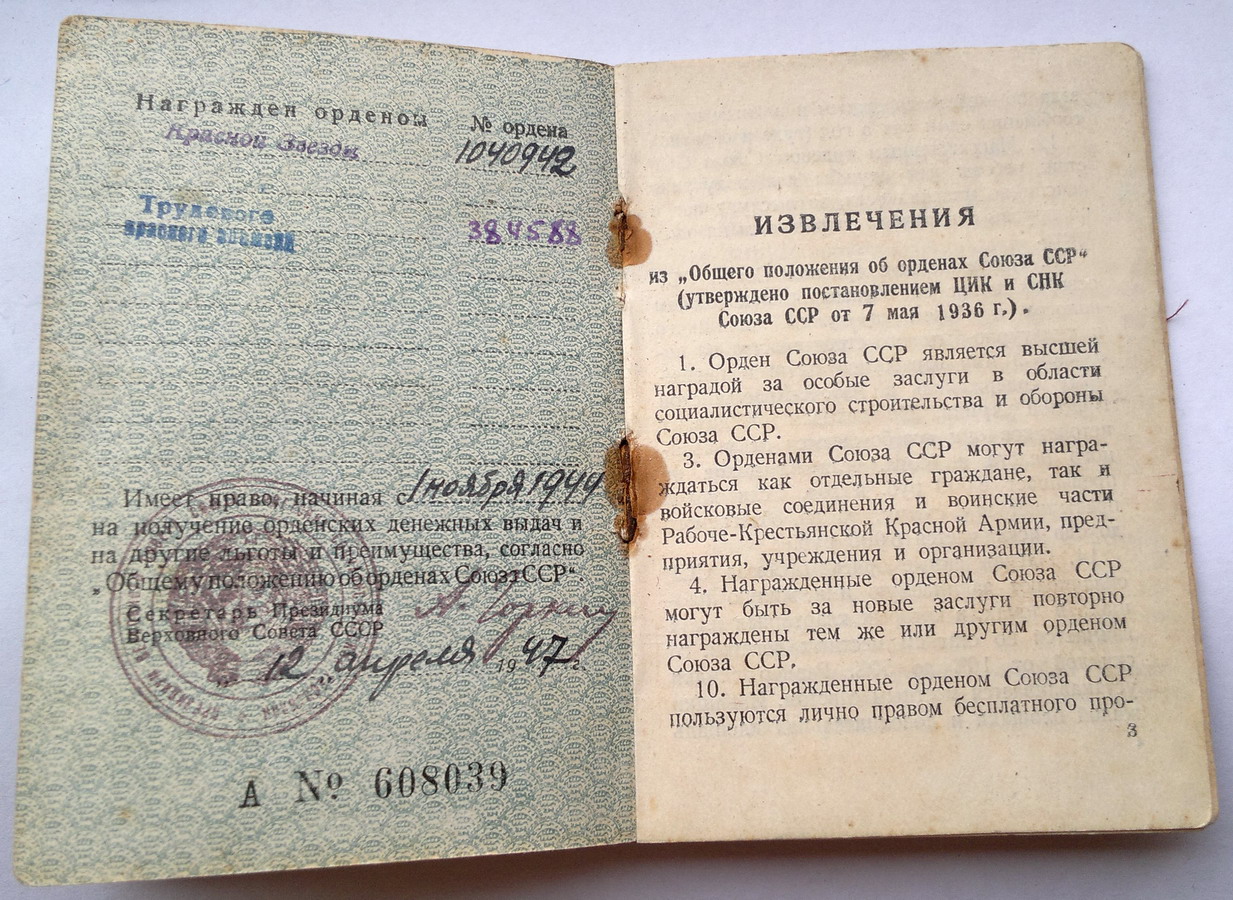 Награжден орденом
№ ордена
Красной Звезды
1040942
Трудового
красного знамени
384588
Имеет право, начиная с 1 ноября 1944
на получение орденских денежных выдач и
на другие льготы и преимущества, согласно
„Общему положению об орденах Союза ССР“.
Секретарь Президиума
Верховного Совета СССР
А. Горкин
„12„ апреля 1947 г.
А № 608039
ИЗВЛЕЧЕНИЯ
из „Общего положения об орденах Союза ССР“
(утверждено постановлением ЦИК и СНК
Союза ССР от 7 мая 1936 г.).
1. Орден Союза ССР является высшей
наградой за особые заслуги в области
социалистического строительства и обороны
Союза ССР.
3. Орденами Союза ССР могут награ-
ждаться как отдельные граждане, так и
войсковые соединения и воинские части
Рабоче-Крестьянской Красной Армии, пред-
приятия, учреждения и организации.
4. Награжденные орденом Союза ССР
могут быть за новые заслуги повторно
награждены тем же или другим орденом
Союза ССР.
10. Награжденные орденом Союза ССР
пользуются лично правом бесплатного про-
3